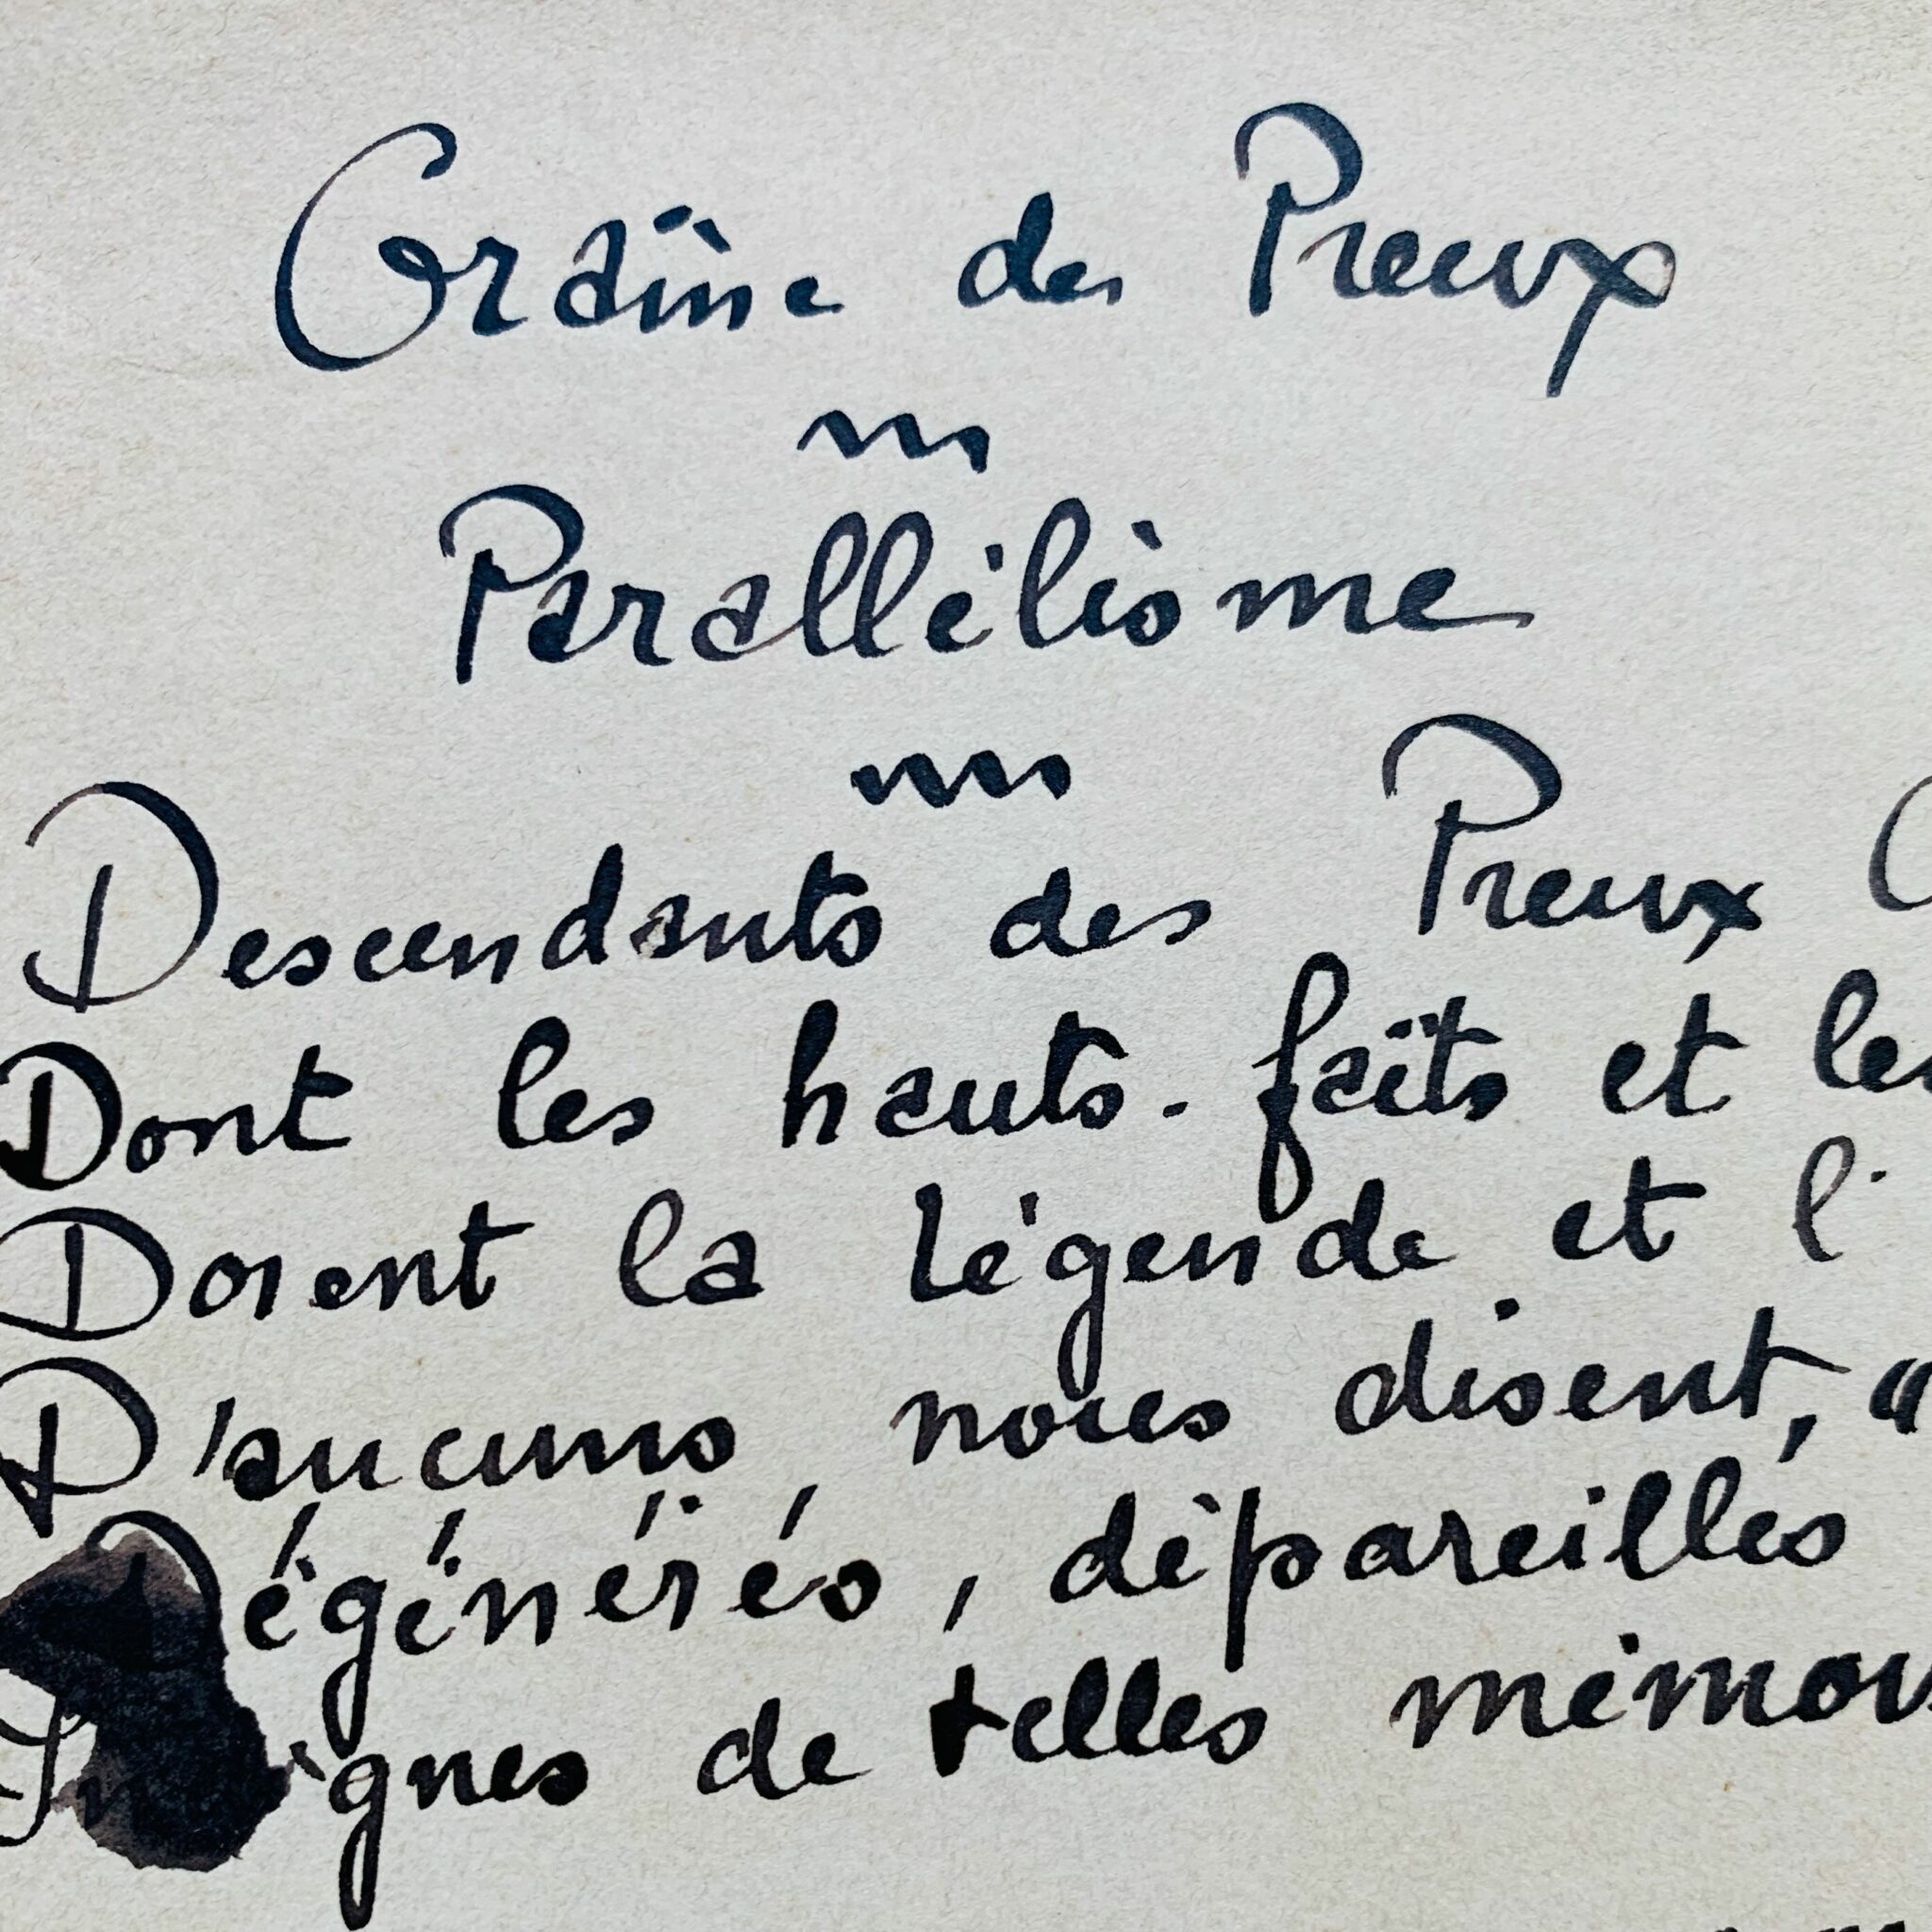 Graine des Preux
Parallélisme
Descendants des Preux
Dont les hauts-faits et les
Dorent la légende et l'
D'aucuns, nous disent, "
Dégénérés, dépareillés
Indignes de telles